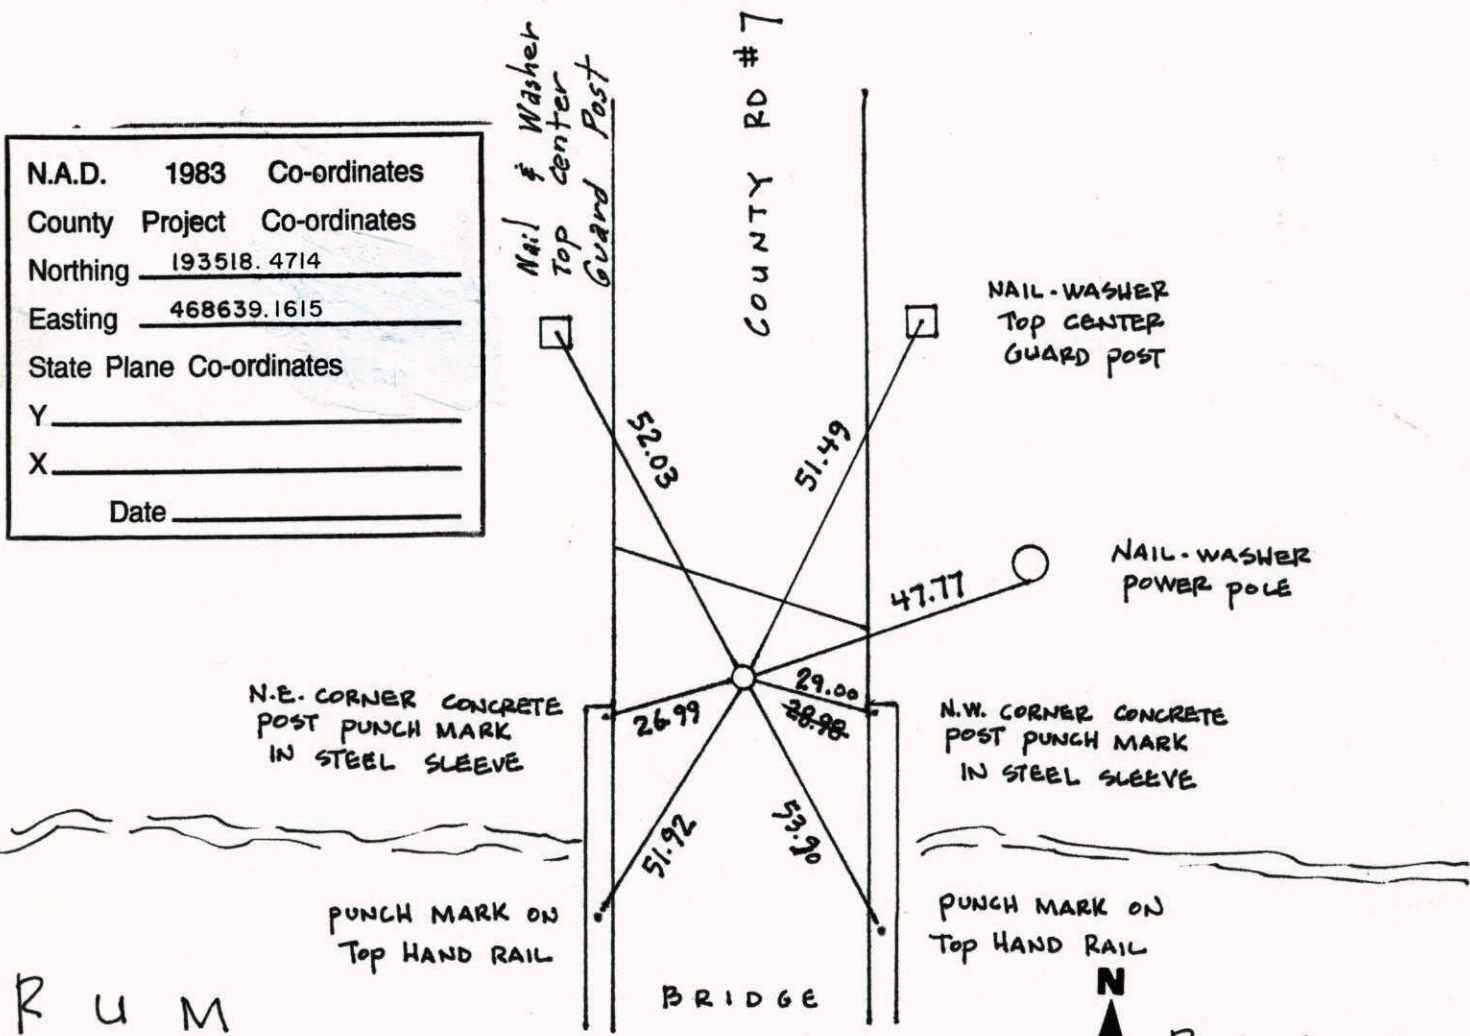 N.A.D. 1983 Co-ordinates
County Project Co-ordinates
Northing 193518.4714
Easting 468639.1615
State Plane Co-ordinates
Y
X
Date
Nail & Washer
Top Center
Guard Post
COUNTY RD #7
NAIL-WASHER
Top CENTER
GUARD POST
52.03
51.49
47.77
NAIL-WASHER
POWER POLE
N.E. CORNER CONCRETE
POST PUNCH MARK
IN STEEL SLEEVE
26.99
29.00
28.98
N.W. CORNER CONCRETE
POST PUNCH MARK
IN STEEL SLEEVE
51.92
53.90
PUNCH MARK ON
Top HAND RAIL
PUNCH MARK ON
Top HAND RAIL
RUM
BRIDGE
N